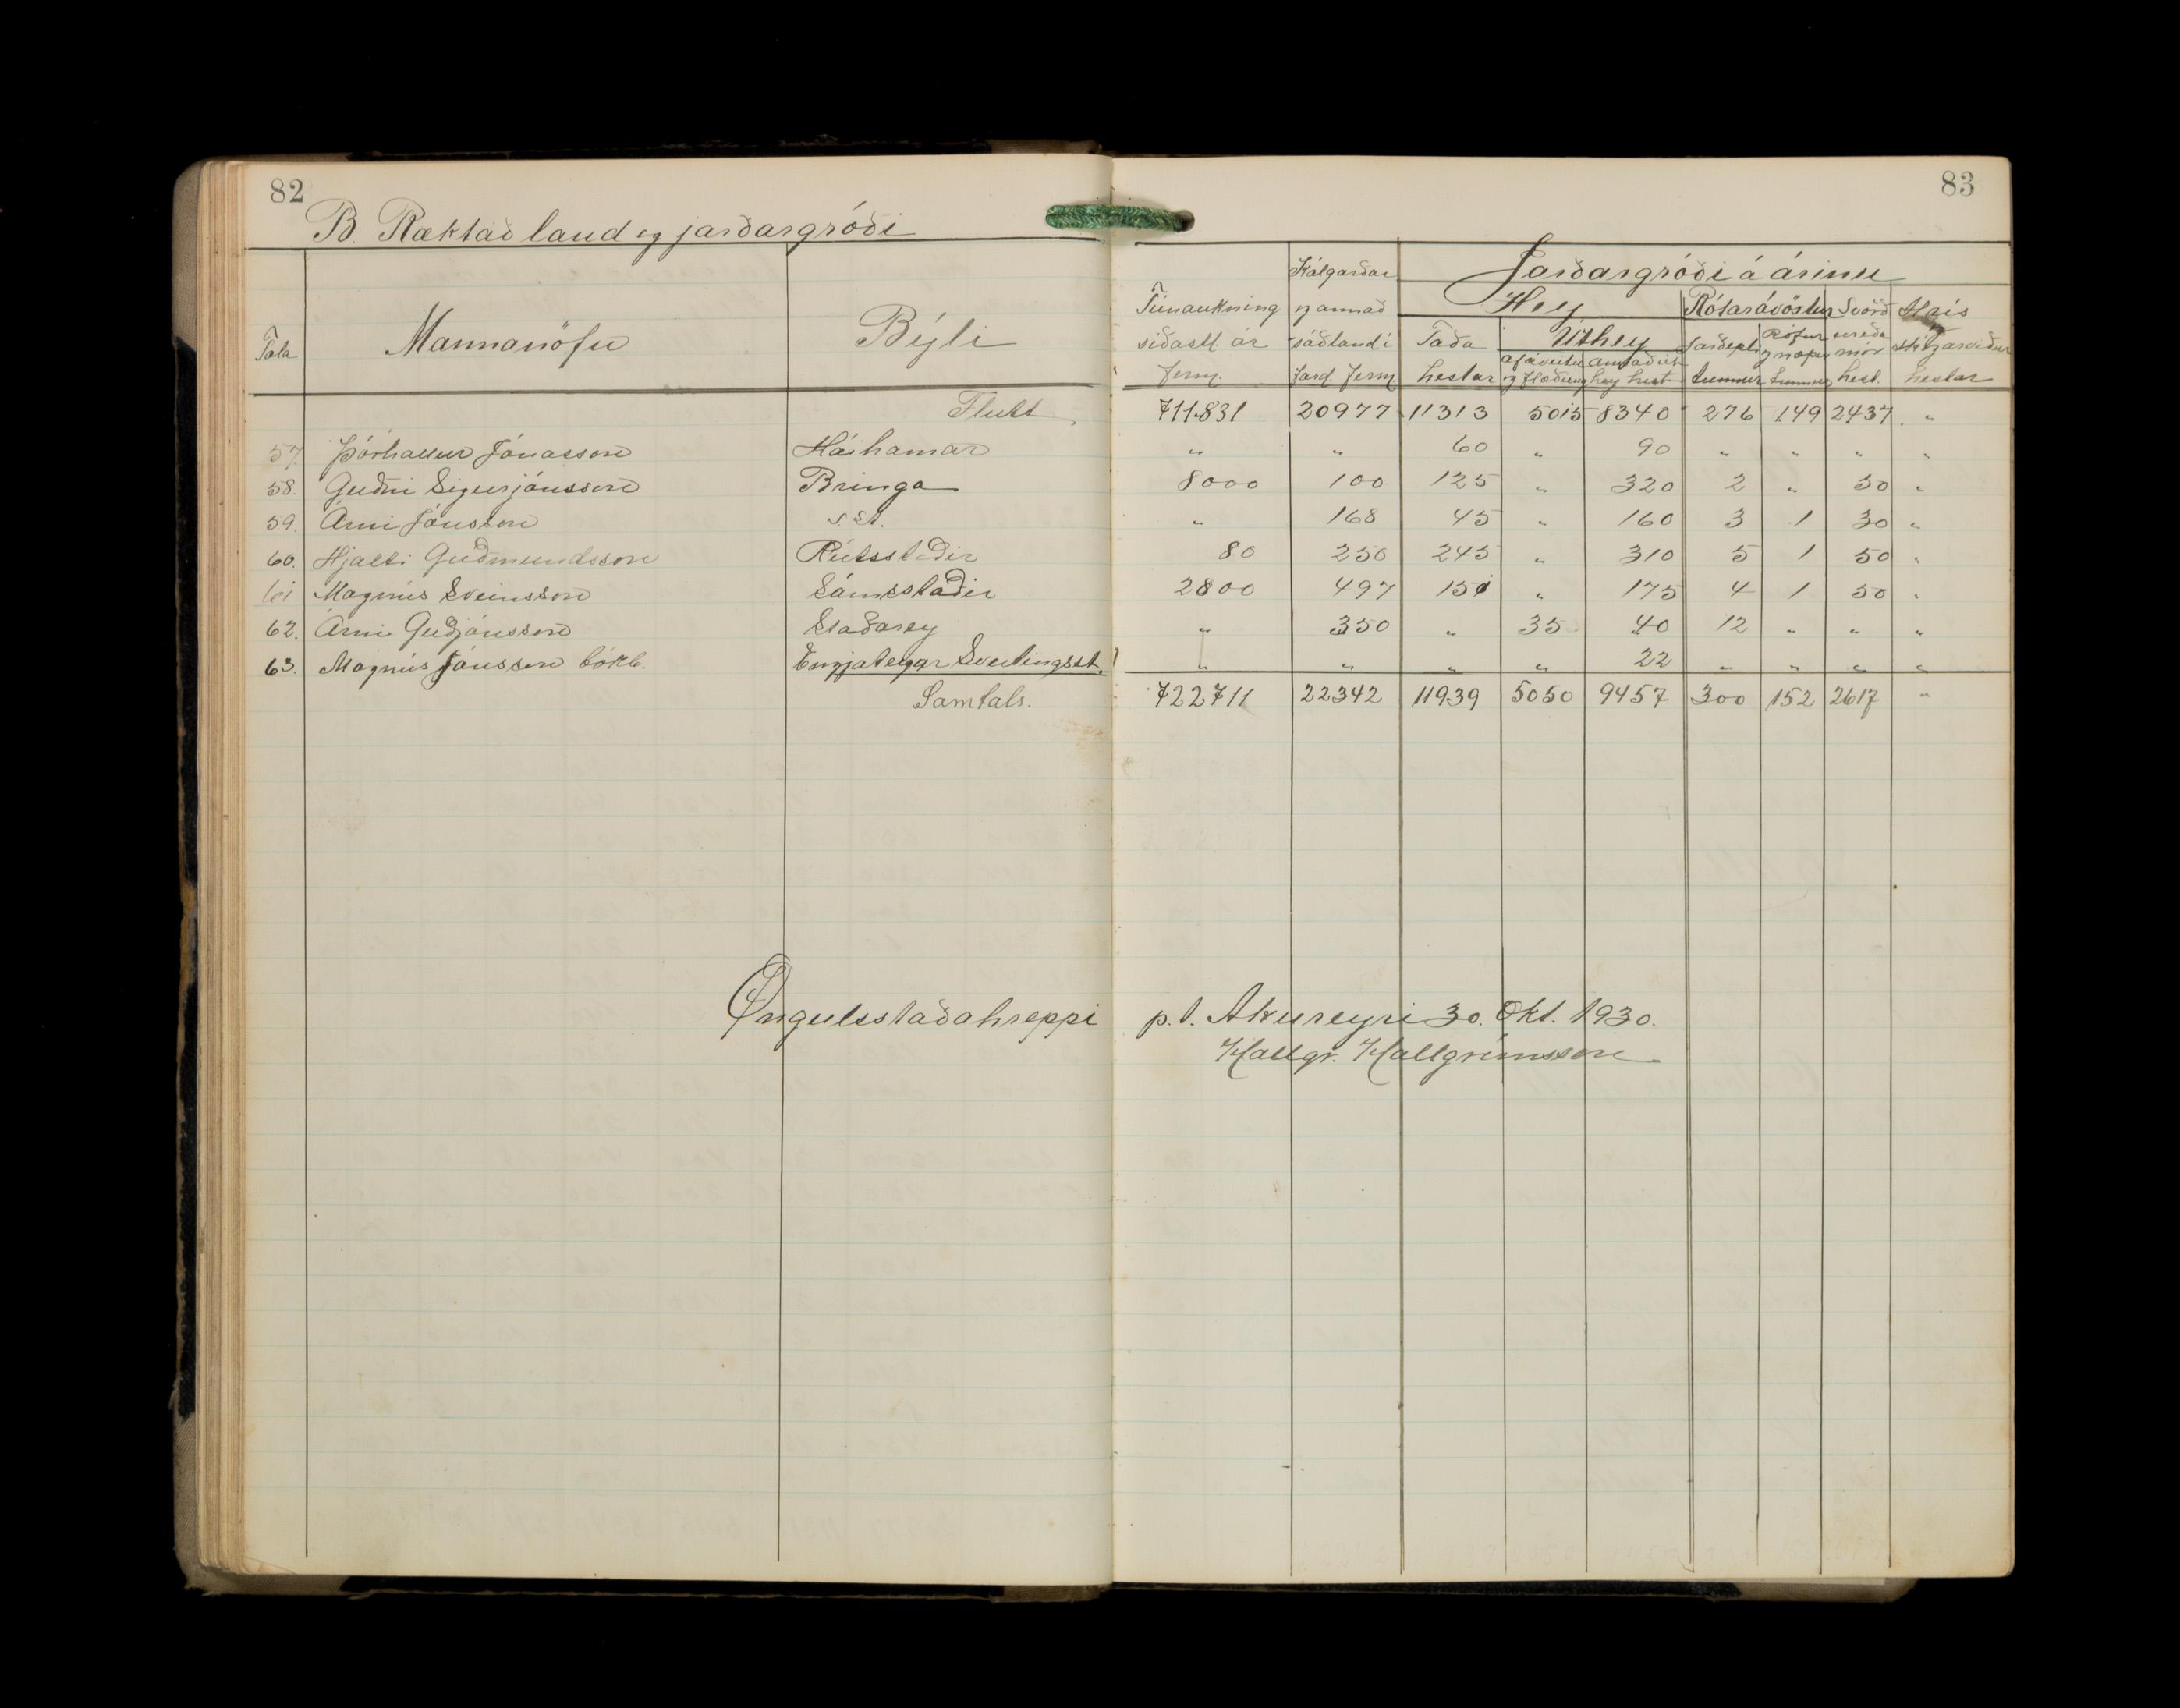 82
B. Ræktað land og jarðargróði
Tala Mannanöfn Býli
Flutt
57. Þórhallur Jónasson Háihamar
58. Guðni Sigurjónsson Bringa
59. Árni Jónsson s. st.
60. Hjalti Guðmundsson Rútsstaðir
61 Magnús Sveinsson Sámsstaðir
62. Árni Guðjónsson Staðarey
63. Magnús Jónsson bókb. Engjateigar Sveitingsst.
Samtals.
Öngulsstaðahreppi
83
Túnaukning síðastl. ár ferm.
Kálgarðar og annað sáðland í jarð. ferm.
Jarðargróði á árinu
Hey
Taða hestar
Úthey
af áveitu og flæðieng
annað úthey hest
Rótarávöxtur
Jarðepli tunnur
Rófur og næpur tunnur
Svörð ur eða mór hest.
Hrís skógarviður hestar
711831 20977 11313 5015 8340 276 149 2437 "
" " 60 " 90 " " " "
8000 100 125 " 320 2 " 50 "
" 168 45 " 160 3 1 30 "
80 250 245 " 310 5 1 50 "
2800 497 151 " 175 4 1 50 "
" 350 " 35 40 12 " " "
" " " " 22 " " " "
722711 22342 11939 5050 9457 300 152 2617 "
p.t. Akureyri 30. Okt. 1930.
Hallgr. Hallgrímsson